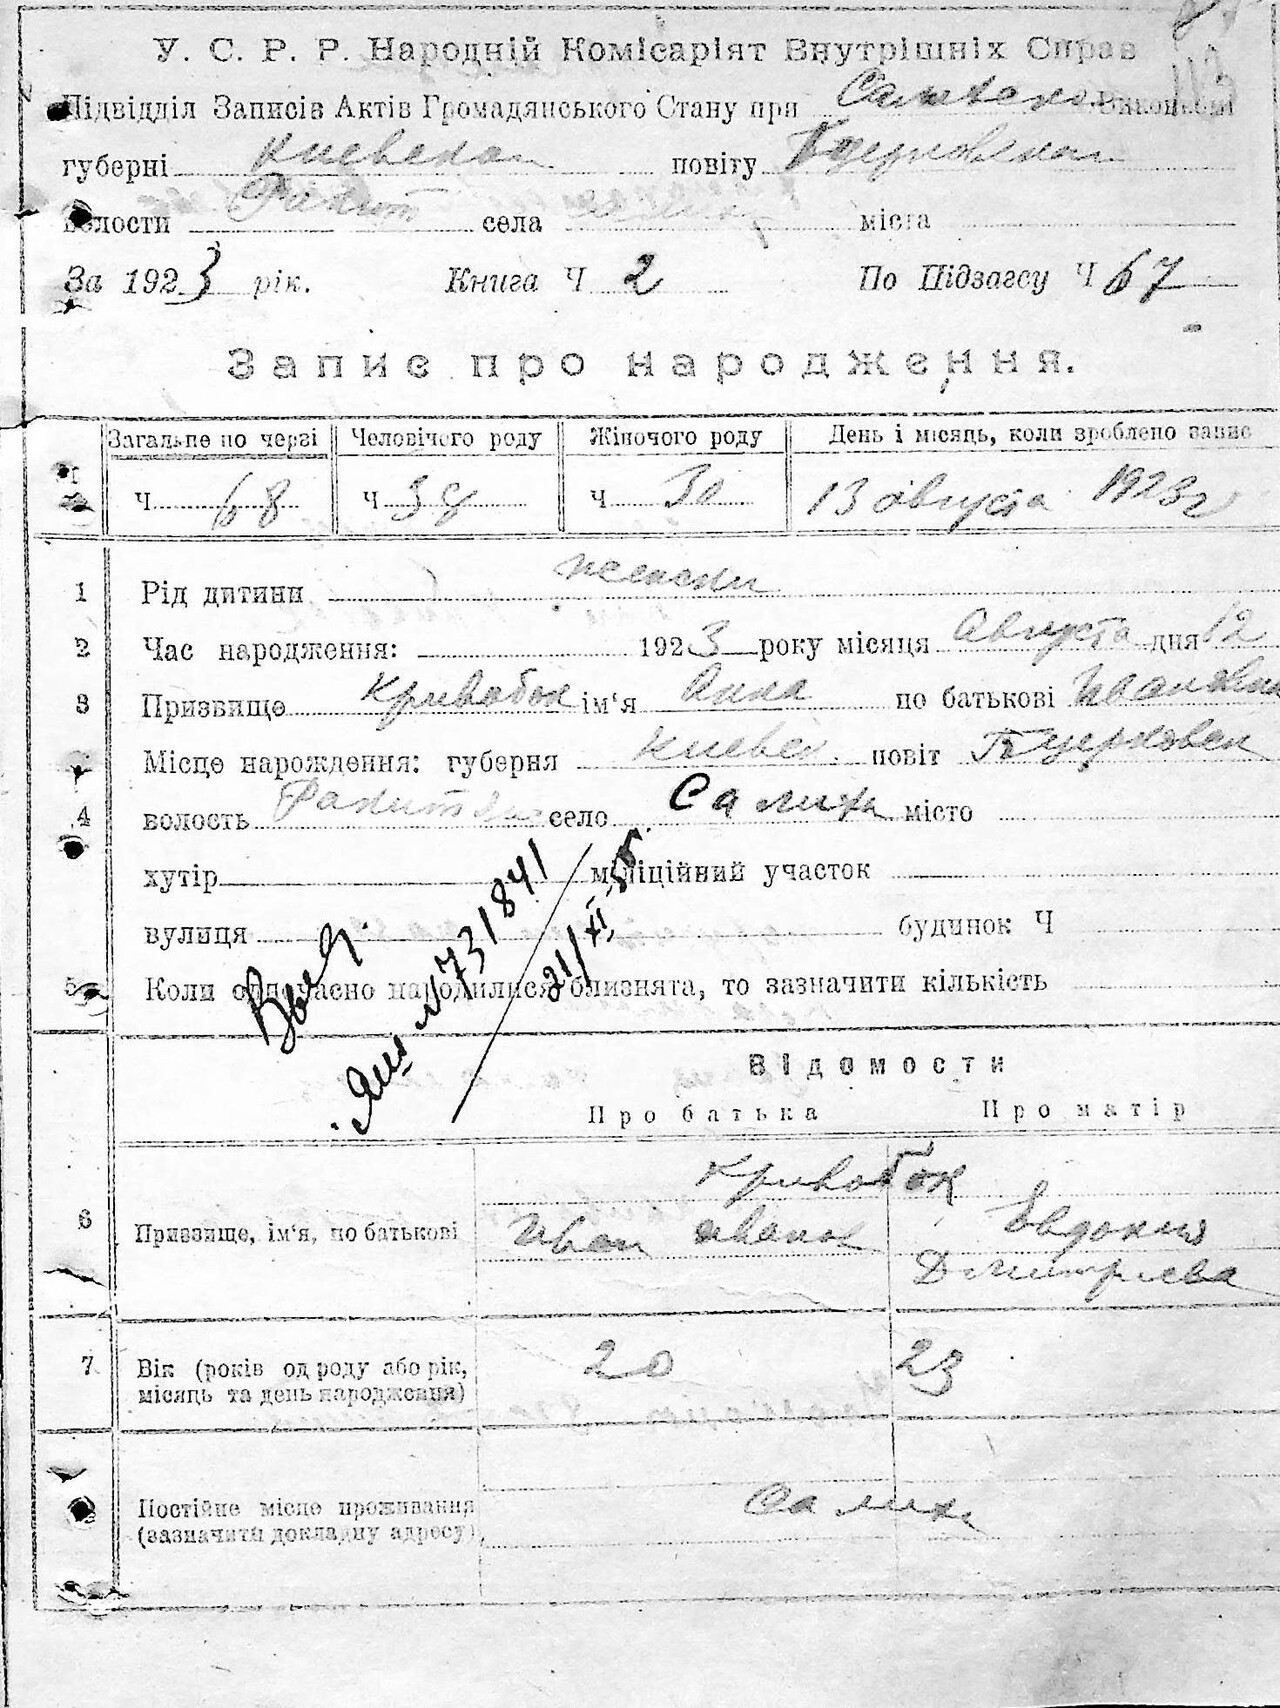 У. С. Р. Р. Народній Комісаріят Внутрішніх Справ
Підвідділ Записів Актів Громадянського Стану при
губерні Киевская повіту
волости Ракит села міста
За 1923 рік. Книга Ч 2 По Підзагсу Ч 67
Запис про народження.
Загальне по черзі Человічего роду Жіночого роду День і місяць, коли зроблено запис
1 Ч 68 Ч 38 Ч 30 13 августа 1923 г
1 Рід дитини женски
2 Час народження: 1923 року місяця Августа дня 12
3 Призвище Кривобок ім'я Анна по батькові
Місце нарождення: губерня Киевск. повіт Бцерковск
4 волость село Салиха місто
хутір міліційний участок
вулиця будинок Ч
5 Коли одночасно народилися близнята, то зазначити кількість
Выд.
№ 731841
21/XI
Відомости
Про батька Про матір
Кривобок
6 Призвище, ім'я, по батькові Иван Иванов Евдокия
Дмитриева
7 Вік (років од роду або рік, 20 23
місяць та день народження)
Постійне місце проживання Салиха
(зазначити докладну адресу)